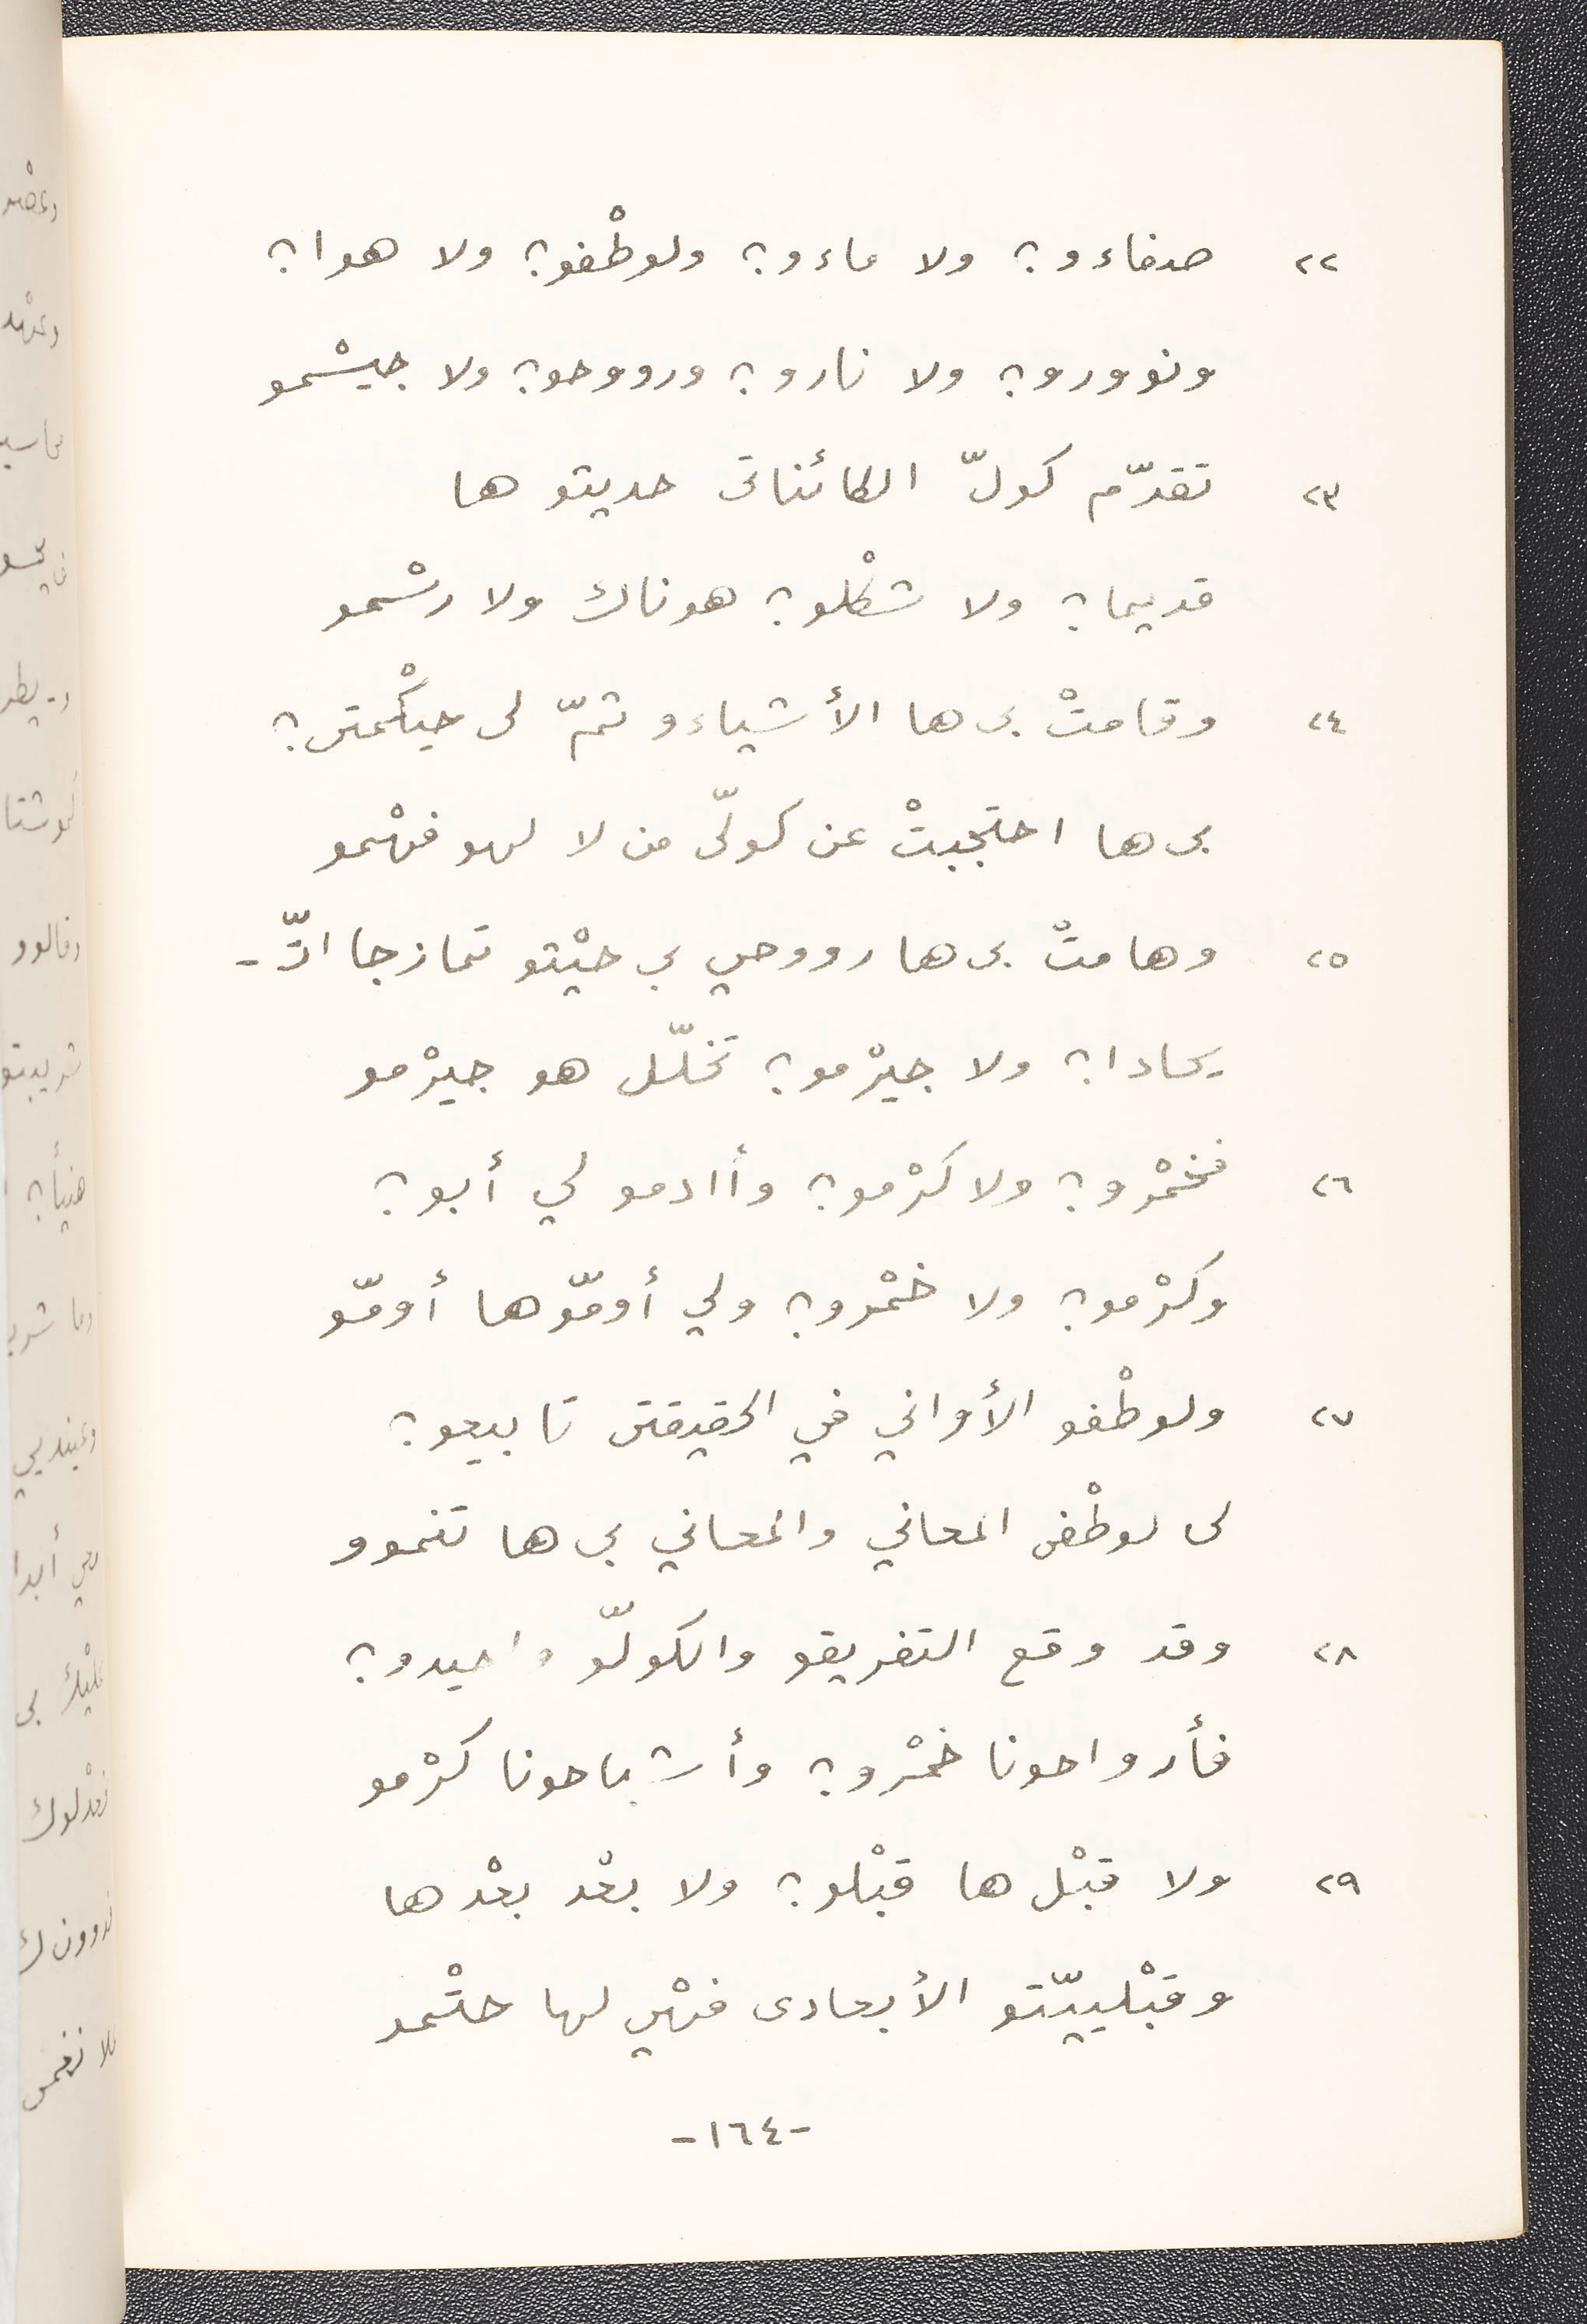 ٢٢ صفاءو؟ ولا ماءو؟ ولوطْفو؟ ولا هوا؟
ونوورو؟ ولا نارو؟ وروو حو؟ ولا جيسْمو
٢٣ تقدّم كولّ الكائناتى حديتو ها
قديما؟ ولا شكْلو؟ هوناك ولا رسْمو
٢٤ وقامتْ بى ها الأشياءو ثمّ لى حيكْمتى؟
بى ها احتجبتْ عن كولّى من لا لهو فهْمو
٢٥ وهامتْ بى ها رووحي بي حيْثو تمازجا اتّ -
يحادا؟ ولا جيرْمو؟ تخلّل هو جيرْمو
٢٦ فخمْرو؟ ولا كرْمو؟ وأادمو لي أبو؟
وكرْمو؟ ولا خمْرو؟ ولي أومّوها أومّو
٢٧ ولوطْفو الأواني في الحقيقتى تابيعو؟
لى لوطْفى المعاني والمعاني بى ها تنموو
٢٨ وقد وقع التفريقو والكولّو واحيدو؟
فأرواحونا خمْرو؟ وأشباحونا كرْمو
٢٩ ولا قبْل ها قبْلو؟ ولا بعْد بعْدها
وقبْلييّتو الأبعادى فهْي لها حتْمو
-١٦٤-